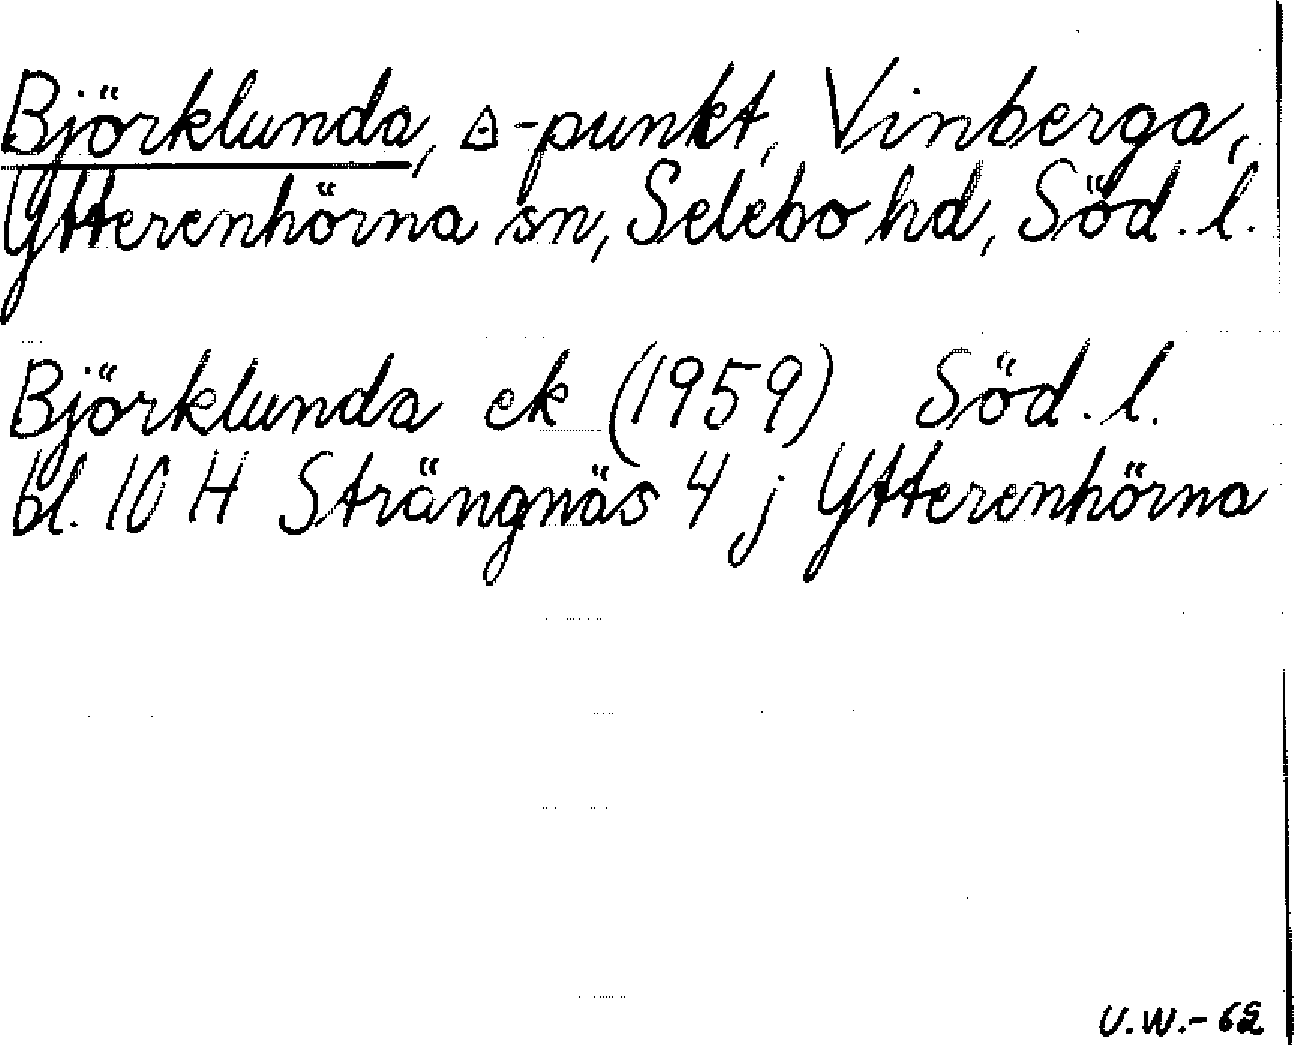 Björklunda, ◬-punkt, Vinberga,
Ytterenhörna sn, Selebo hd, Söd. l.
Björklunda ek (1959) Söd. l.
bl. 10 H Strängnäs 4 j Ytterenhörna
U.W.-62